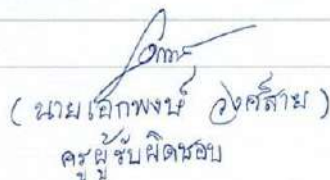 ( นายเอกพงษ์ วงศ์สาย )
ครูผู้รับผิดชอบ